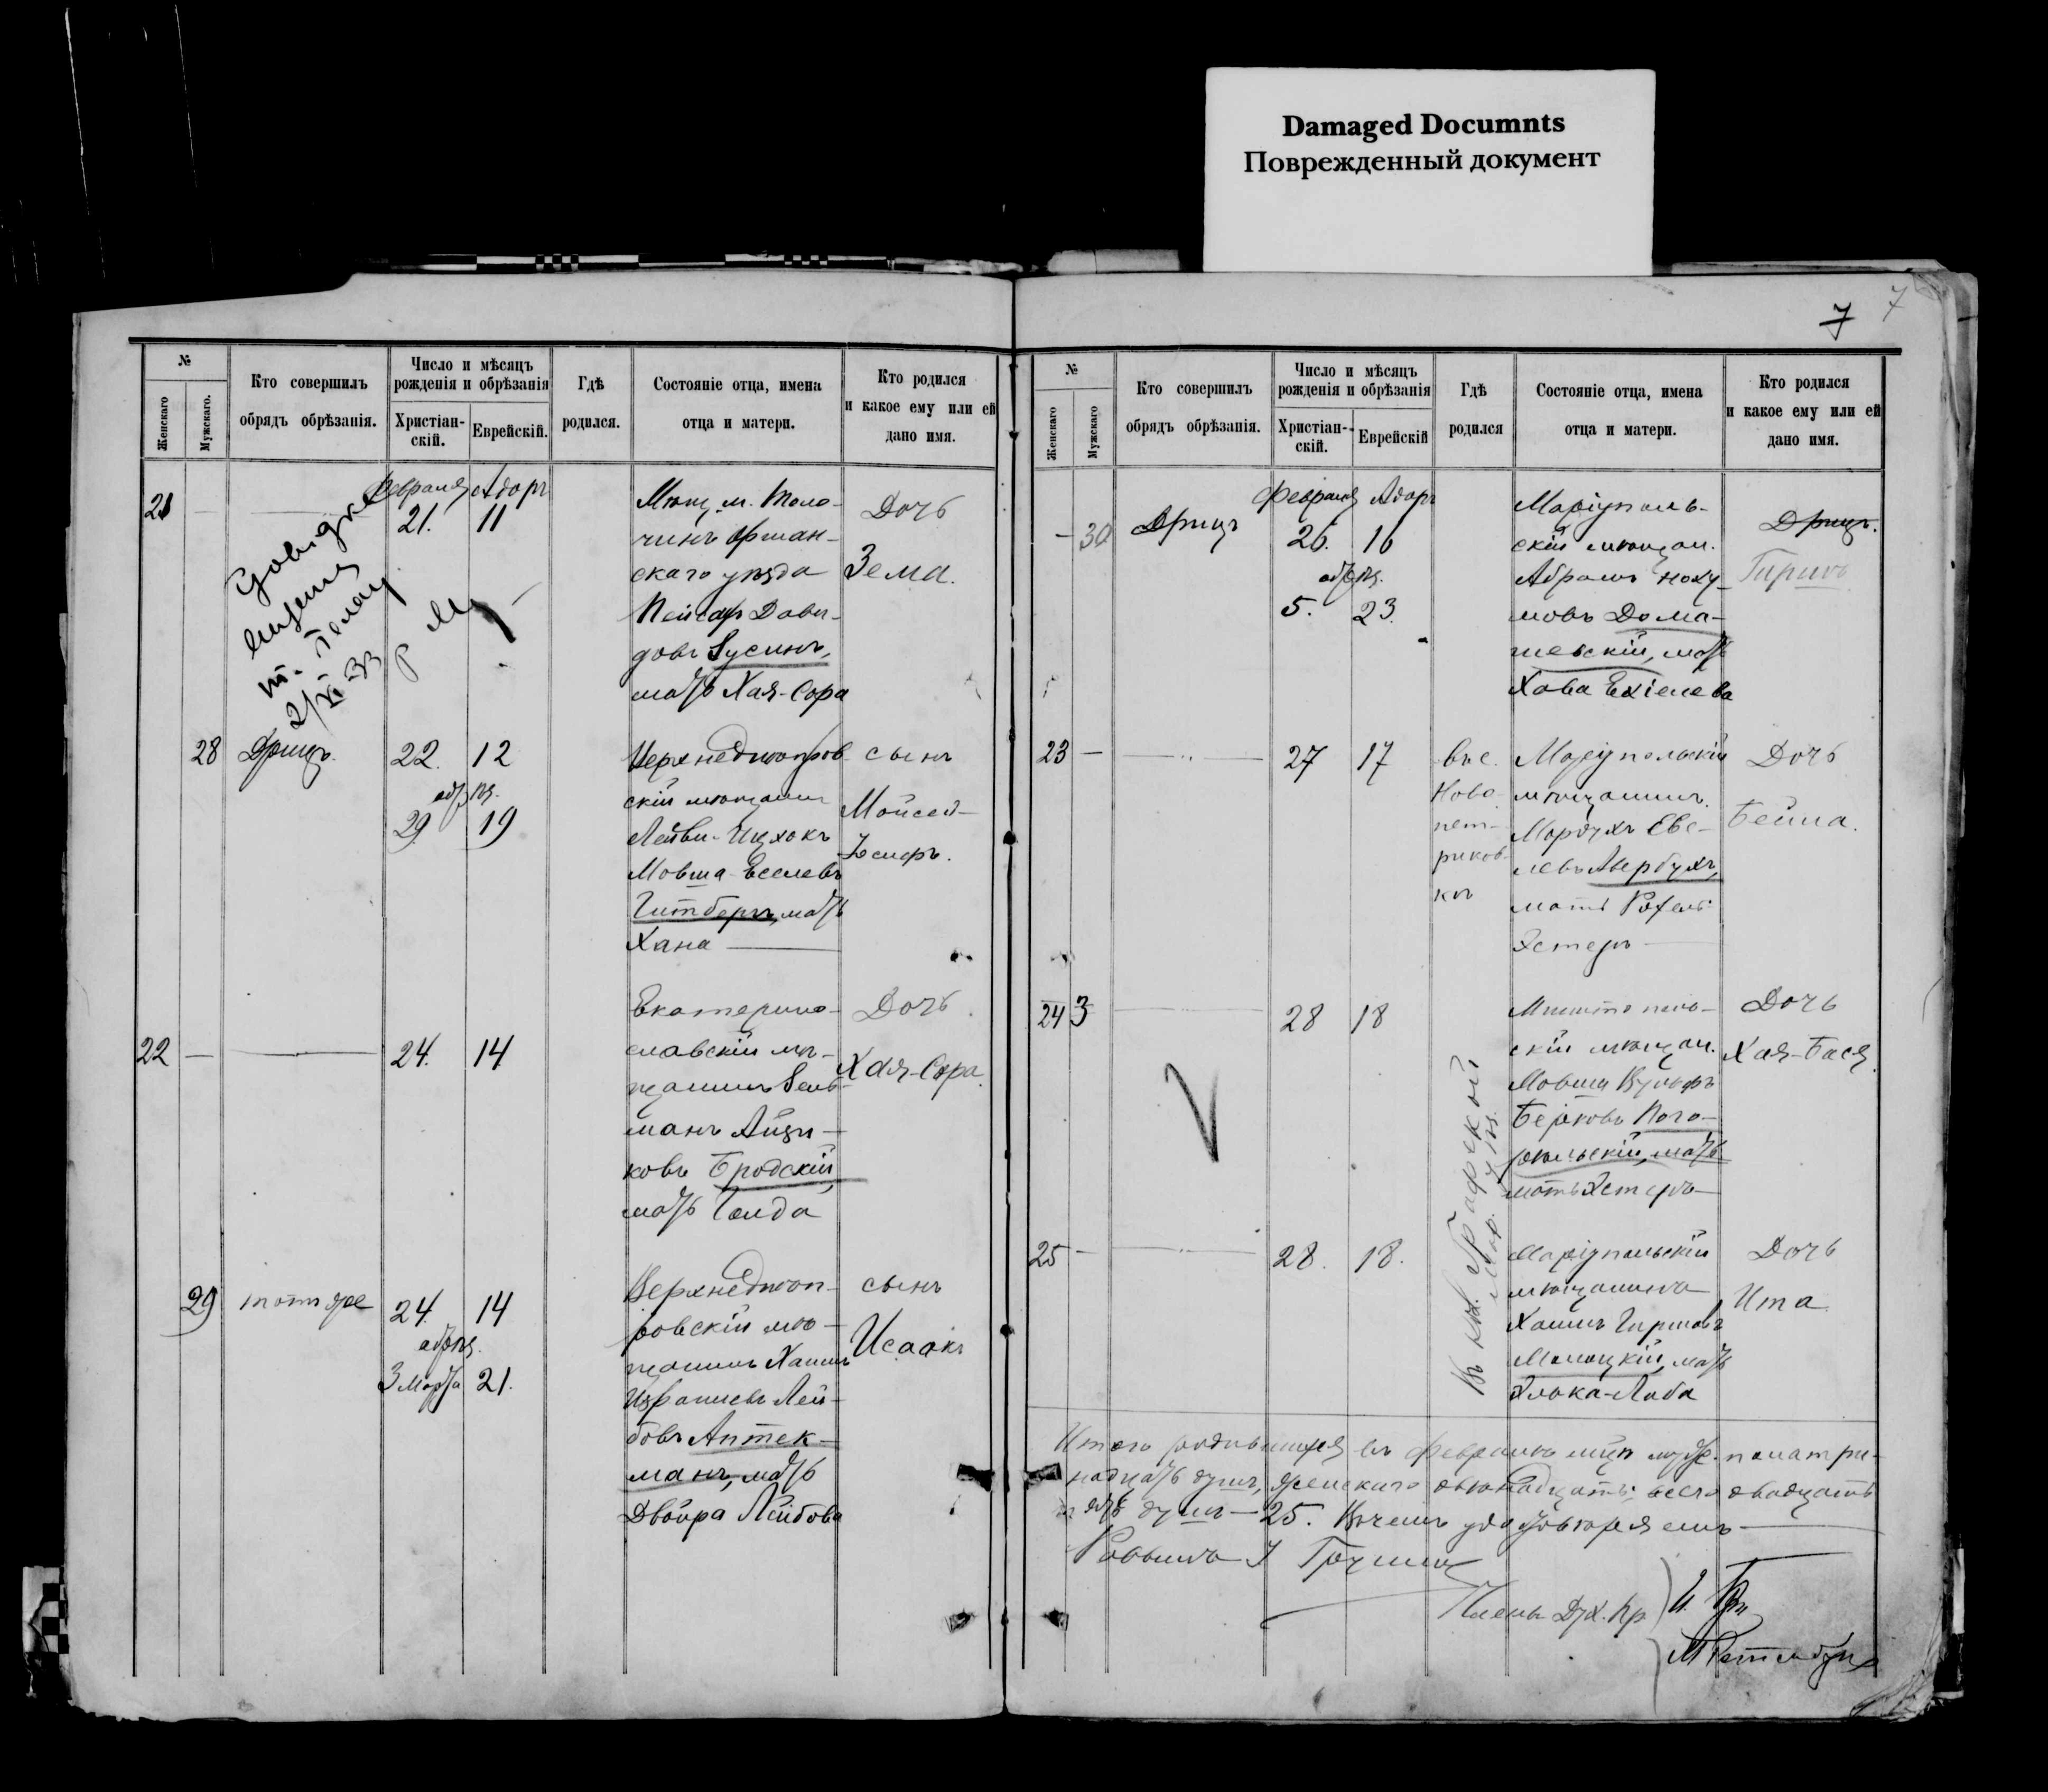 Damaged Documnts
Поврежденный документ
7 7
№
Женскаго
Мужскаго.
Кто совершилъ
обрядъ обрѣзанія.
Число и мѣсяцъ
рожденія и обрѣзанія
Христіан-
скій.
Еврейскій.
Гдѣ
родился.
Состояніе отца, имена
отца и матери.
Кто родился
и какое ему или ей
дано имя.
21
Февраля Адаръ
21. 11
Мѣщ. м. Толо-
чинъ Оршан-
скаго уѣзда
Пейсахъ Давы-
довъ Зусинъ,
мать Хая-Сора
Дочь
Зема.
2/XI-33
28 Дрицъ
22. 12
обрѣз.
29. 19
Верхнеднѣпров-
скій мѣщанин
Лейви-Ицхокъ
Мовша-Еселевъ
Гитбергъ, мать
Хана
сынъ
Мойсей-
Іосифъ.
22
24. 14
Екатерино-
славскій мѣ-
щанинъ Зель-
манъ Айзи-
ковъ Бродскій,
мать Голда
Дочь
Хая-Сора.
29 тотъ же
24. 14
обрѣз.
3 Марта 21.
Верхнеднѣп-
ровскій мѣ-
щанинъ Хаимъ
Израилевъ Лей-
бовъ Аптек-
манъ, мать
Двойра Лейбова
сынъ
Исаакъ
№
Женскаго
Мужскаго
Кто совершилъ
обрядъ обрѣзанія.
Число и мѣсяцъ
рожденія и обрѣзанія
Христіан-
скій.
Еврейскій
Гдѣ
родился
Состояніе отца, имена
отца и матери.
Кто родился
и какое ему или ей
дано имя.
30 Дрицъ
Февраля Адаръ
26. 16
обрѣз.
5. 23.
Маріуполь-
скій мѣщан.
АбрамъНоху-
мовъ Дома-
шевскій, мать
Хава Ехіелева
Дрицъ.
Гиршъ
23
27 17
въ с.
Ново-
пет-
риков-
кѣ
Маріупольскій
мѣщанинъ.
Мордухъ Еве-
левъ Авербухъ,
мать Рохель-
Эстеръ
Дочь
Бейла.
24 3
28 18
Въ кол. Графской
Мар. уѣз.
скій мѣщан.
Мовша Вульфъ
Берковъ Пого-
рѣльскій, мать
мать Эстеръ
Дочь
Хая-Бася
25
28. 18.
Маріупольскій
мѣщанинъ
Хаимъ Гиршовъ
мать
Дочь
Ита
Итого родившихся въ Февралѣ мцѣ муж. пола три-
надцать душъ, женскаго двѣнадцать, всего двадцать
пять душъ — 25. Въ чемъ удостовѣряемъ
Раввинъ
Члены Дух. Пр.